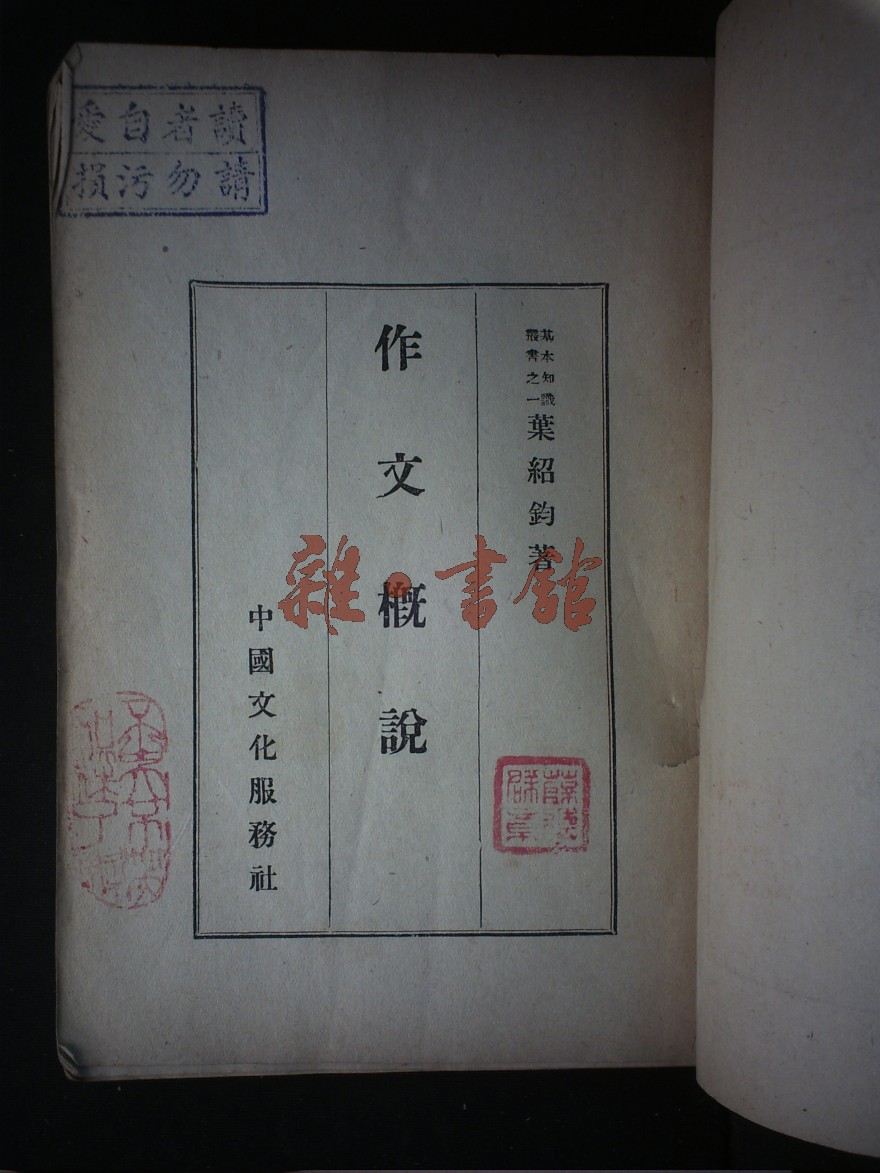 讀者自愛
請勿污損
基本知識
叢書之一
葉紹鈞著
作文概說
中國文化服務社
雜·書館